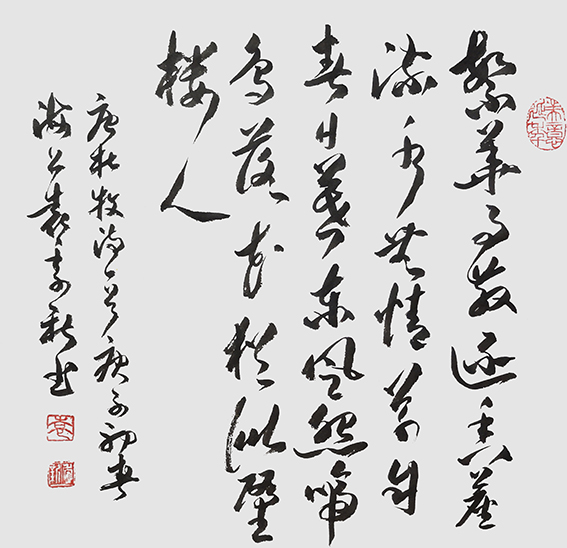 繁華事散逐香塵
流水無情草自
春日暮東風怨啼
鳥落花猶似墜
樓人
唐杜牧詩一首庚子初春
海上袁秋書